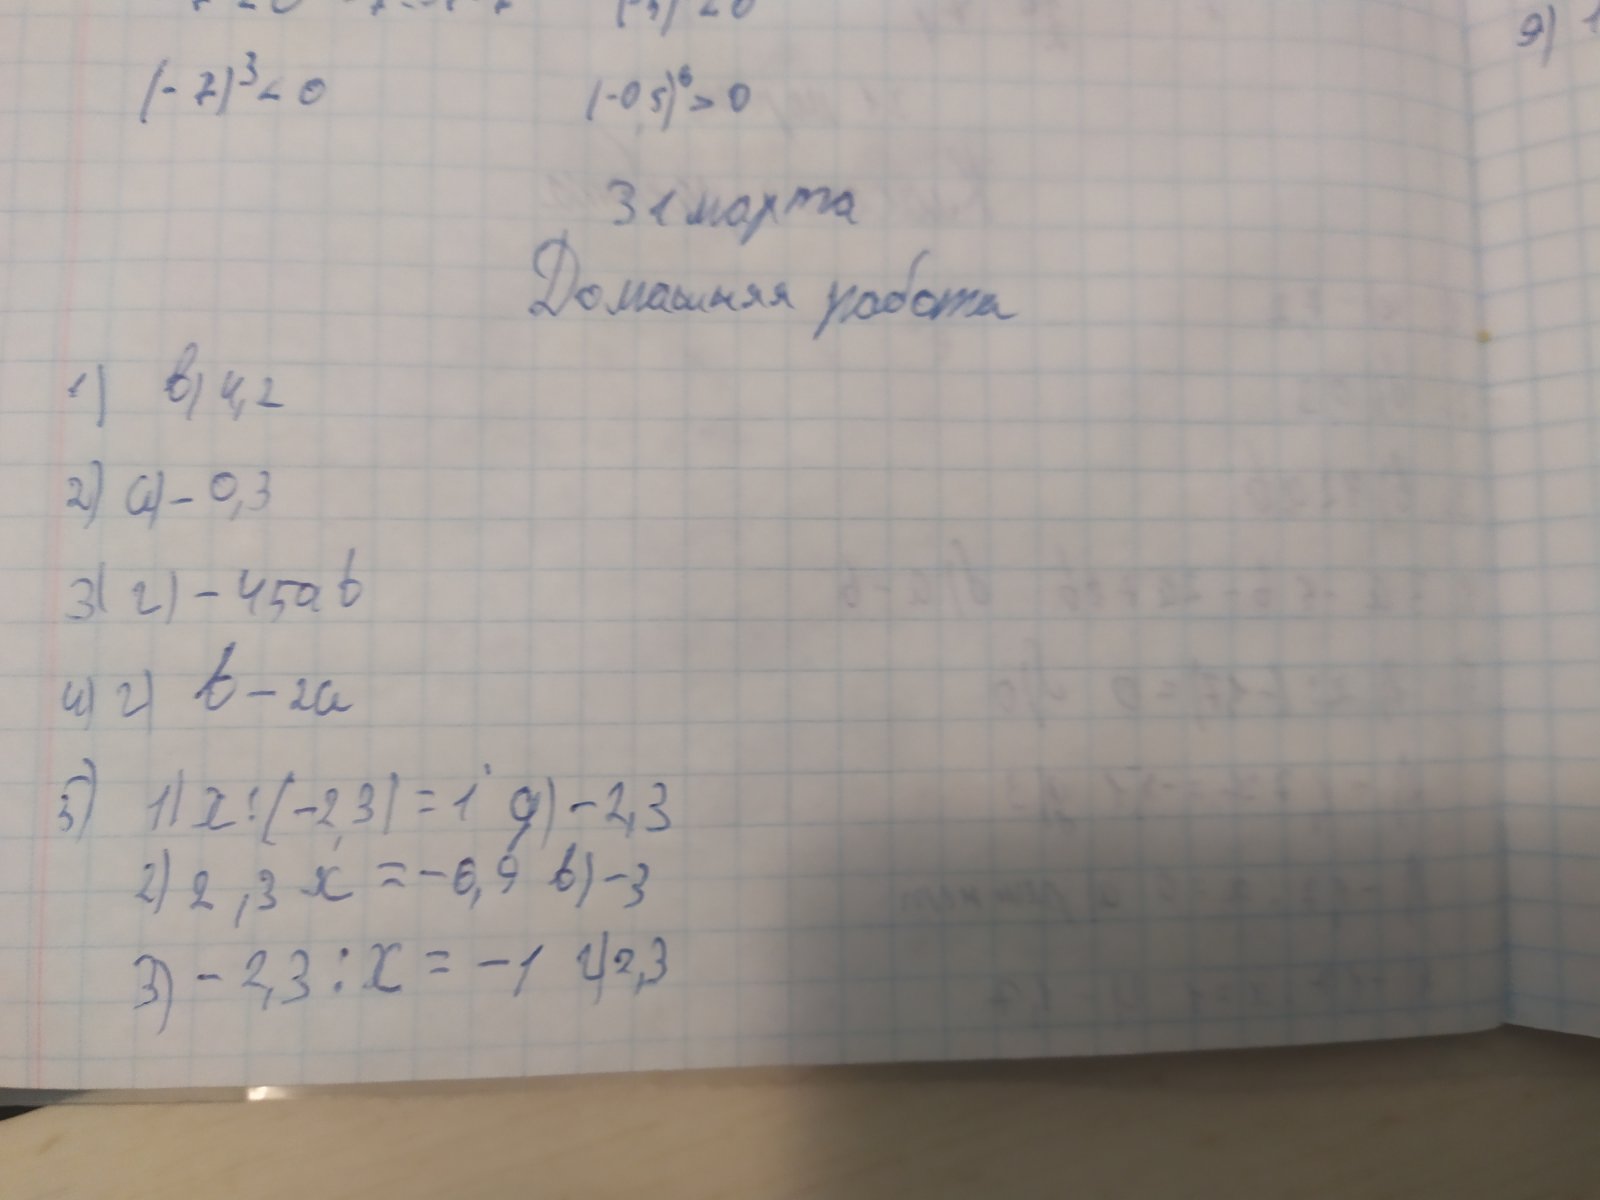 (-7)³ < 0 (-0,5)⁶ > 0
31 марта
Домашняя работа
1) в) 4,2
2) а) - 0,3
3) г) - 45ab
4) г) b - 2a
5) 1) x : (-2,3) = 1 а) - 2,3
2) 2,3 x = -6,9 в) -3
3) - 2,3 : x = -1 г) 2,3